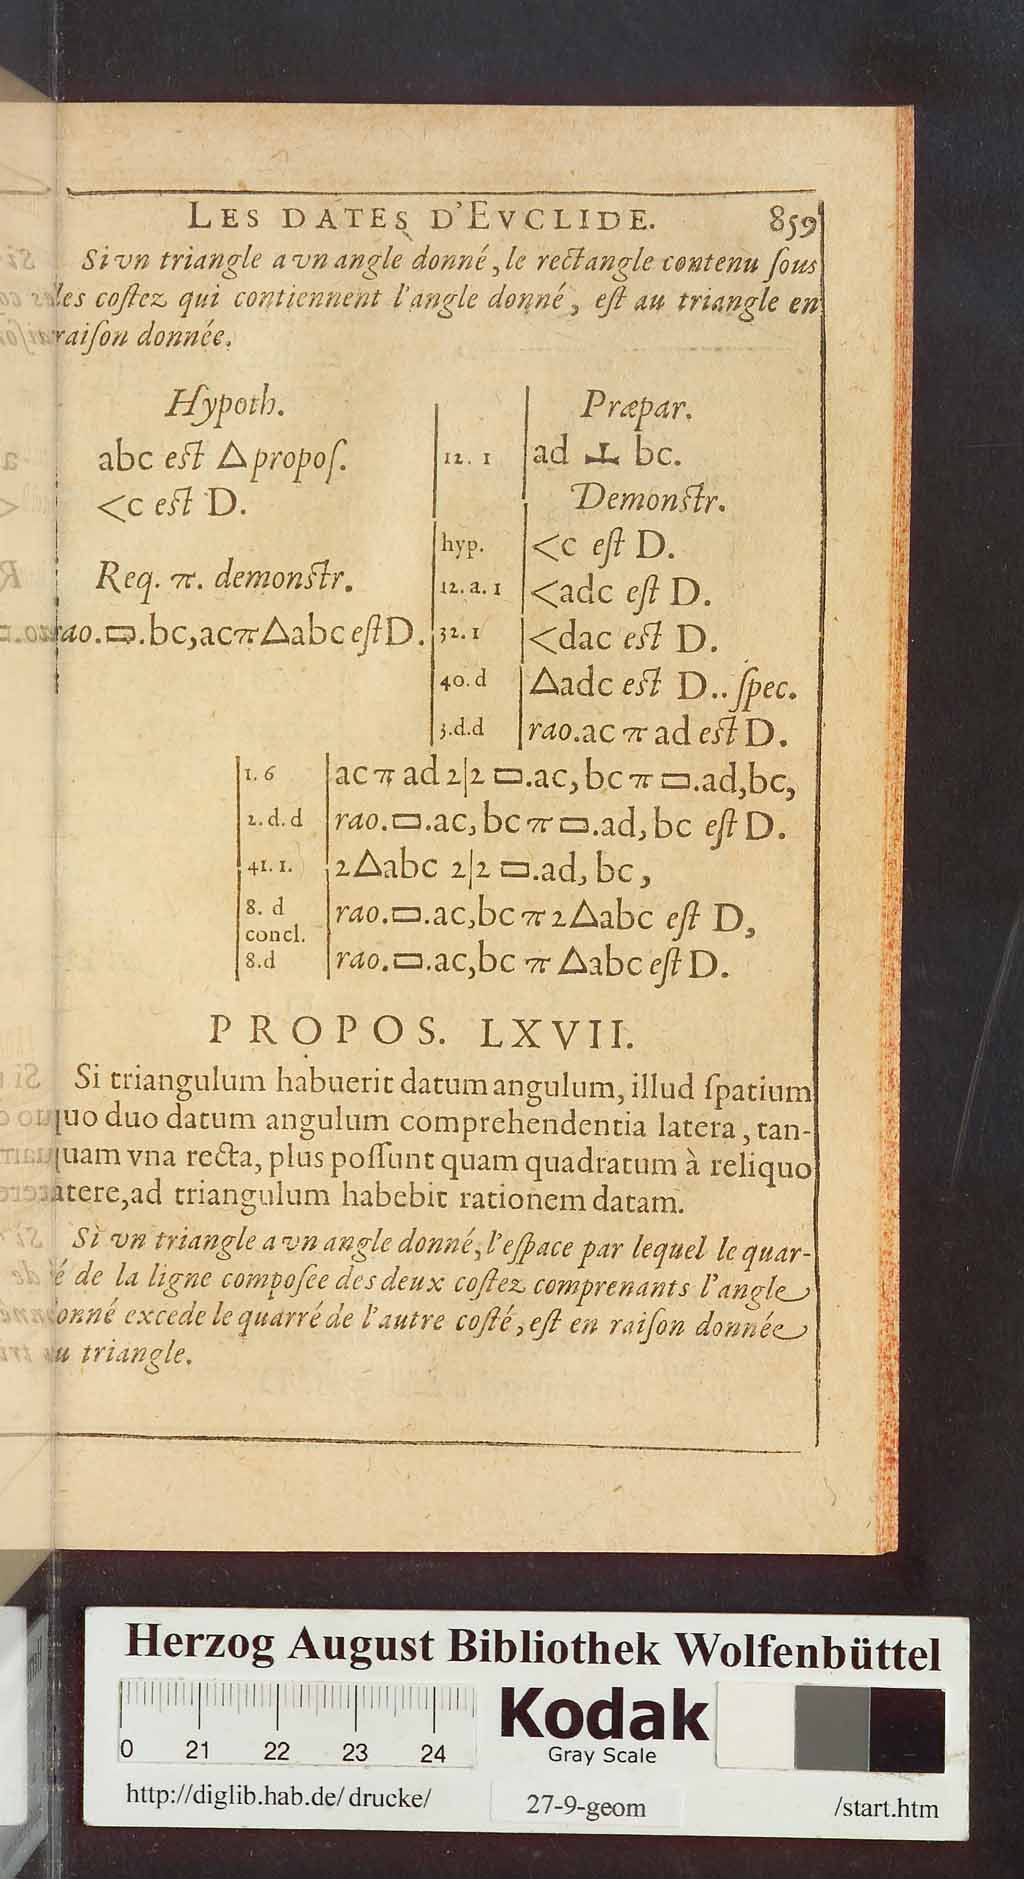 LES DATES D'EVCLIDE. 859
Si vn triangle a vn angle donné, le rectangle contenu ſous
les coſtez qui contiennent l'angle donné, eſt au triangle en
raiſon donnée.
Hypoth.
abc eſt △ propoſ.
<c eſt D.
Req. π. demonſtr.
rao.▭.bc,ac π △abc eſt D.
Præpar.
12. 1 ad ⊥ bc.
Demonſtr.
hyp. <c eſt D.
12. a. 1 <adc eſt D.
32. 1 <dac eſt D.
40. d △adc eſt D.. ſpec.
3.d.d rao.ac π ad eſt D.
1. 6 ac π ad 2|2 ▭.ac, bc π ▭.ad,bc,
2. d. d rao.▭.ac, bc π ▭.ad, bc eſt D.
41. 1. 2△abc 2|2 ▭.ad, bc,
8. d rao.▭.ac,bc π 2△abc eſt D,
concl.
8.d rao.▭.ac,bc π △abc eſt D.
PROPOS. LXVII.
Si triangulum habuerit datum angulum, illud ſpatium
quo duo datum angulum comprehendentia latera, tan-
quam vna recta, plus poſſunt quam quadratum à reliquo
latere, ad triangulum habebit rationem datam.
Si vn triangle a vn angle donné, l'eſpace par lequel le quar-
ré de la ligne compoſee des deux coſtez comprenants l'angle
donné excede le quarré de l'autre coſté, eſt en raiſon donnée
au triangle.
Herzog August Bibliothek Wolfenbüttel
0 21 22 23 24
Kodak
Gray Scale
http://diglib.hab.de/drucke/ 27-9-geom /start.htm